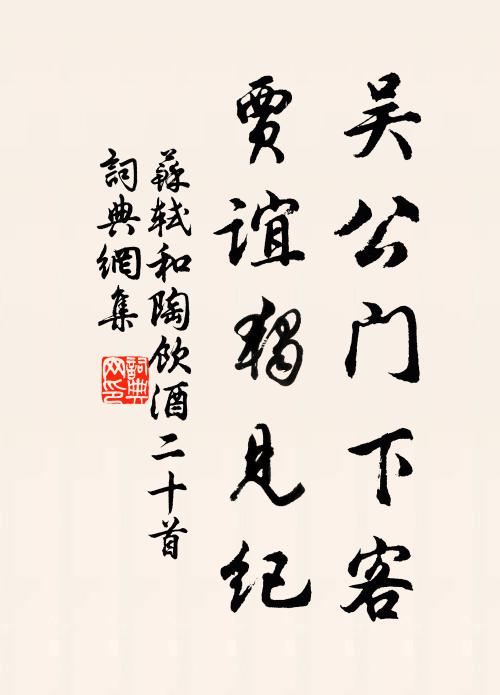 吴公门下客
贾谊獨见纪
蘇軾和陶飲酒二十首
詞典網集
詞典网印